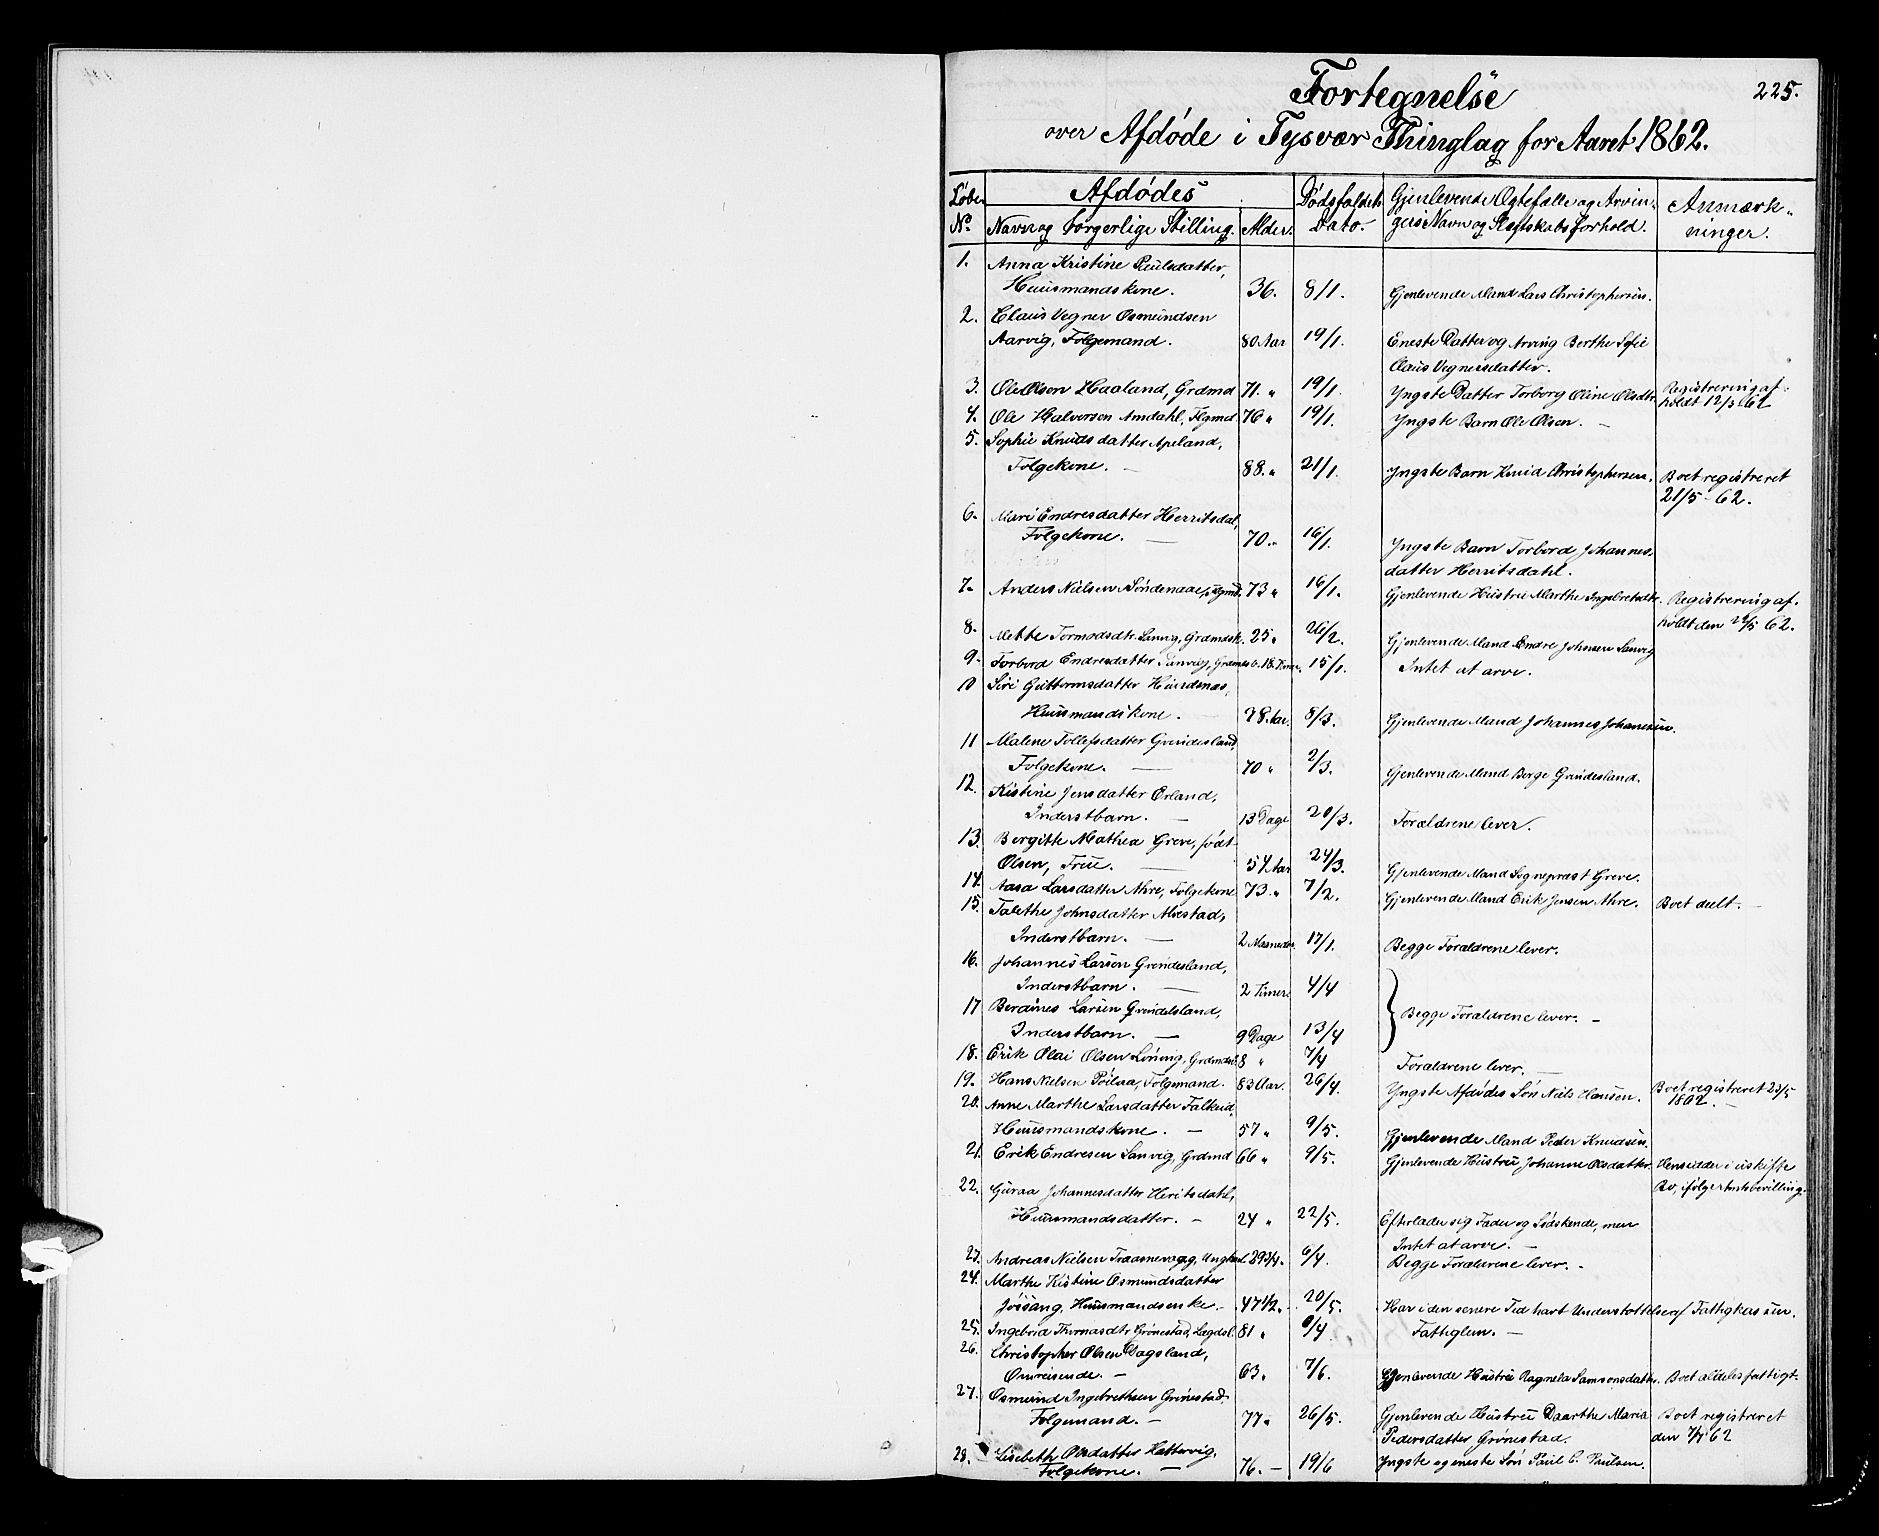 225.
Fortegnelse
over Afdøde i Tysvær Thinglag for Aaret 1862.
Løbe No. Afdødes Navn og borgerlige Stilling. Alder. Dødsfaldets Dato. Gjenlevende Ægtefælle og Arvingers Navn og Slægtskabsforhold. Anmærkninger.
1. Anna Kristine Paulsdatter,
Huusmandskone. 36. 8/1. Gjenlevende Mand Lars Christophersen.
2. Claus Vegner Osmundsen
Aarvig, Folgemand. 80 Aar 19/1. Eneste Datter og Arving Berthe Sofie
Claus Vegnersdatter.
3. Ole Olsen Haaland, Grdmd 71. " 19/1. Yngste Datter Torborg Oline Olsdtr. Registrering af-
holdt 12/5 62
4. Ole Halvorsen Amdahl, Flgmd 76 " 19/1. Yngste Barn Ole Olsen. —
5. Sophie Knudsdatter Apeland,
Folgekone. — 88. " 21/1. Yngste Barn Knud Christophersen. Boet registreret
21/5 - 62.
6. Mari Endresdatter Herritsdal,
Folgekone. — 70. " 16/1. Yngste Barn Torbord Johannes-
datter Herritsdahl.
7. Anders Nielsen Søndenaae, Flgmd. 73 " 16/1. Gjenlevende Hustru Marthe Ingebretsdtr. Registrering af-
holdt den 22/5 62.
8. Mette Tormodsdtr. Lanvig, Grdmdsk. 25 " 26/2. Gjenlevende Mand Endre Johnsen Lanvig
9. Torbord Endresdatter Lanvig, Grdmds b. 18 Timer. 15/1. Intet at arve.
10 Siri Guttormsdatter Hinsdenas,
Huusmandskone. — 78 Aar. 8/3. Gjenlevende Mand Johannes Johannesen.
11 Malene Tollefsdatter Grindesland,
Folgekone. — 70 " 2/3. Gjenlevende Mand Borge Grindesland.
12. Kistine Jensdatter Erland,
Inderstbarn. — 13 Dage 20/3. Forældrene lever.
13. Bergitte Mathea Greve, født
Olsen, Frue. — 54 Aar 24/3. Gjenlevende Mand Sognepræst Greve.
14. Aasa Larsdatter Ahre, Folgekone 73. " 7/2. Gjenlevende Mand Erik Jensen Ahre. Boet deelt. —
15. Talethe Johnsdatter Alvestad,
Inderstbarn. — 2 Maaneder. 17/1. Begge Forældrene lever.
16. Johannes Larsen Grindesland,
Inderstbarn. — 2 Timer 4/4
17 Berdines Larsen Grindelsland,
Inderstbarn. — 9 Dage 13/4 } Begge Forældrene lever. —
18. Erik Olai Olsen Lønvig, Grdmdsb. 8 " 7/4 Forældrene lever. —
19. Hans Nielsen Folgemand. 83 Aar. 26/4. Yngste Afdødes Søn Niels Hansen. Boet registreret 23/5
1862. —
20. Anne Marthe Larsdatter Falkeid,
Huusmandskone. — 57 " 9/5. Gjenlevende Mand Peder Knudsen.
21. Erik Endresen Lanvig, Grdmd 66 " 9/5. Gjenlevende Hustru Johanne Olsdatter. Hensidder i uskifte
Bo, ifølge Amtsbevilling.
22. Guraa Johannesdatter Heritsdahl,
Huusmandsdatter. — 24 " 22/5. Efterlader sig Fader og Sødskende, men
Intet at arve. —
23. Andreas Nielsen Traasnevaag, Ungkarl 29 3/4. 6/4. Begge Forældrene lever. —
24. Marthe Kistine Osmundsdatter
Jøssang, Huusmandsenke. — 47 1/2. 20/5. Har i den senere Tid havt Understøttelse af Fattigkassen.
25. Ingebord Thomasdtr. Grønestad, Lægdsl. 81 " 6/4. Fattiglem. —
26. Christopher Olsen Dagsland,
Omreisende. — 63. " 7/6. Gjenlevende Hustru Ragnela Samsonsdatter. Boet aldeles fattigt.
27. Osmund Ingebrethsen Grønestad,
Folgemand. — 77 " 26/5. Gjenlevende Hustru Daarthe Maria Boet registreret
Pedersdatter Grønestad. den 7/7 62
28. Lisebeth Olsdatter Hattervig,
Folgekone. — 76. — 19/6 Yngste og eneste Søn Paul C. Paulsen.